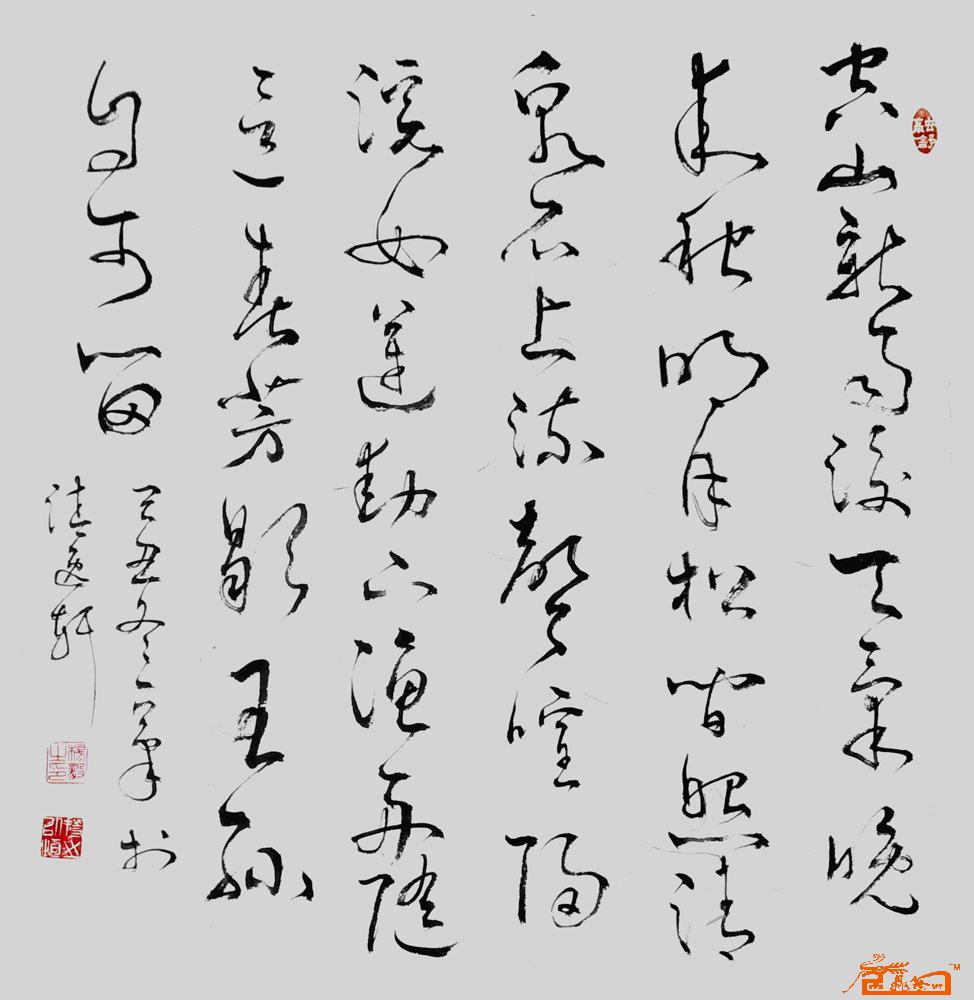 空山新雨後天氣晚
来秋明月松間照清
泉石上流喧歸
浣女蓮動下漁舟隨
意春芳歇王孫
自可留
己丑冬於
逸軒